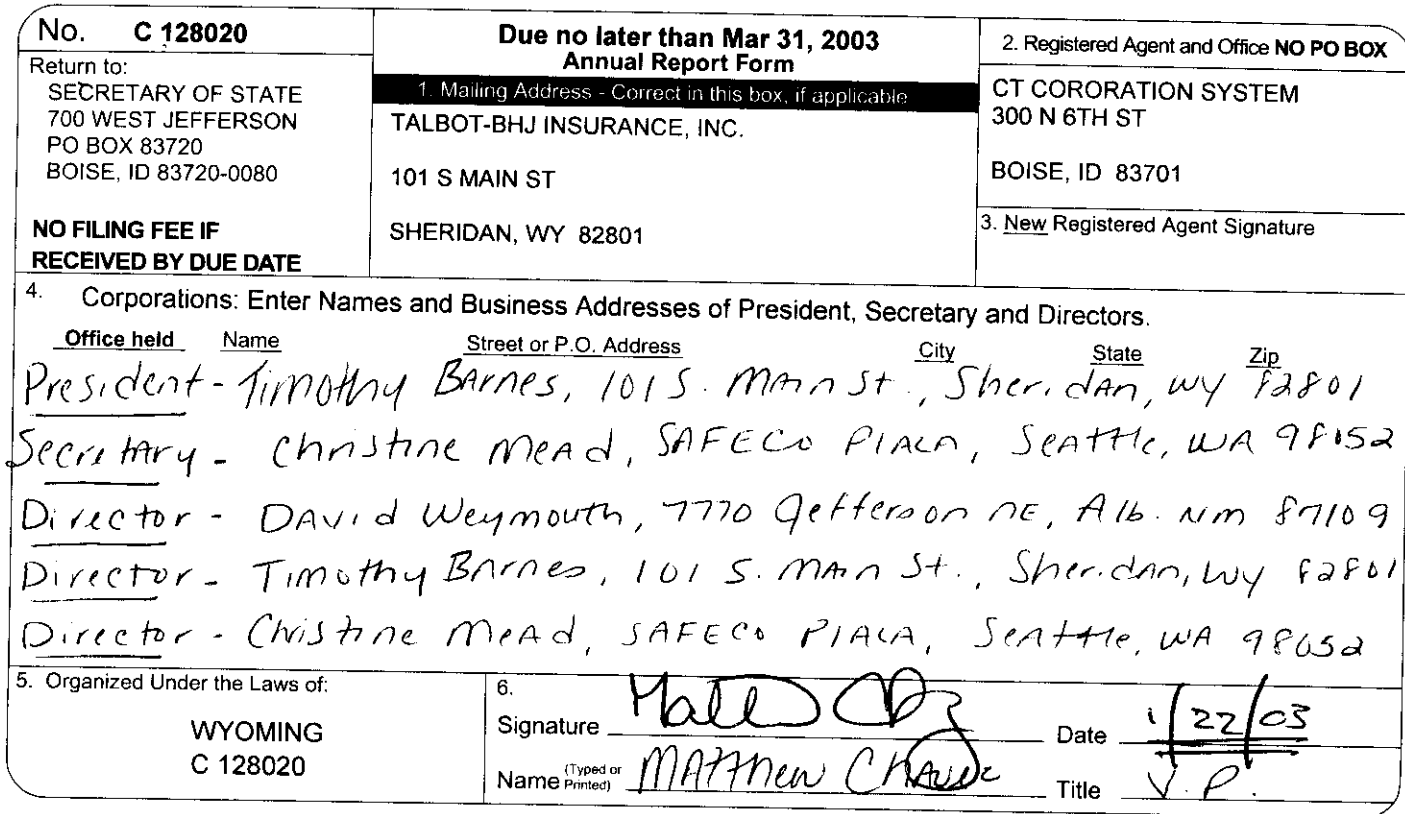 No. C 128020
Return to:
SECRETARY OF STATE
700 WEST JEFFERSON
PO BOX 83720
BOISE, ID 83720-0080
NO FILING FEE IF
RECEIVED BY DUE DATE
Due no later than Mar 31, 2003
Annual Report Form
1. Mailing Address - Correct in this box, if applicable
TALBOT-BHJ INSURANCE, INC.
101 S MAIN ST
SHERIDAN, WY 82801
2. Registered Agent and Office NO PO BOX
CT CORORATION SYSTEM
300 N 6TH ST
BOISE, ID 83701
3. New Registered Agent Signature
4. Corporations: Enter Names and Business Addresses of President, Secretary and Directors.
Office held Name Street or P.O. Address City State Zip
President - Timothy Barnes, 101 S. Main St., Sheridan, WY 82801
Secretary - Christine Mead, SAFECO Plaza, Seattle, WA
Director - David Weymouth, 7770 Jefferson NE, Alb. NM 87109
Director - Timothy Barnes, 101 S. Main St., Sheridan, WY 82801
Director - Christine Mead, SAFECO Plaza, Seattle, WA
5. Organized Under the Laws of:
WYOMING
C 128020
6.
Signature
Date 1/22/03
Name (Typed or Printed) Matthew
Title V.P.